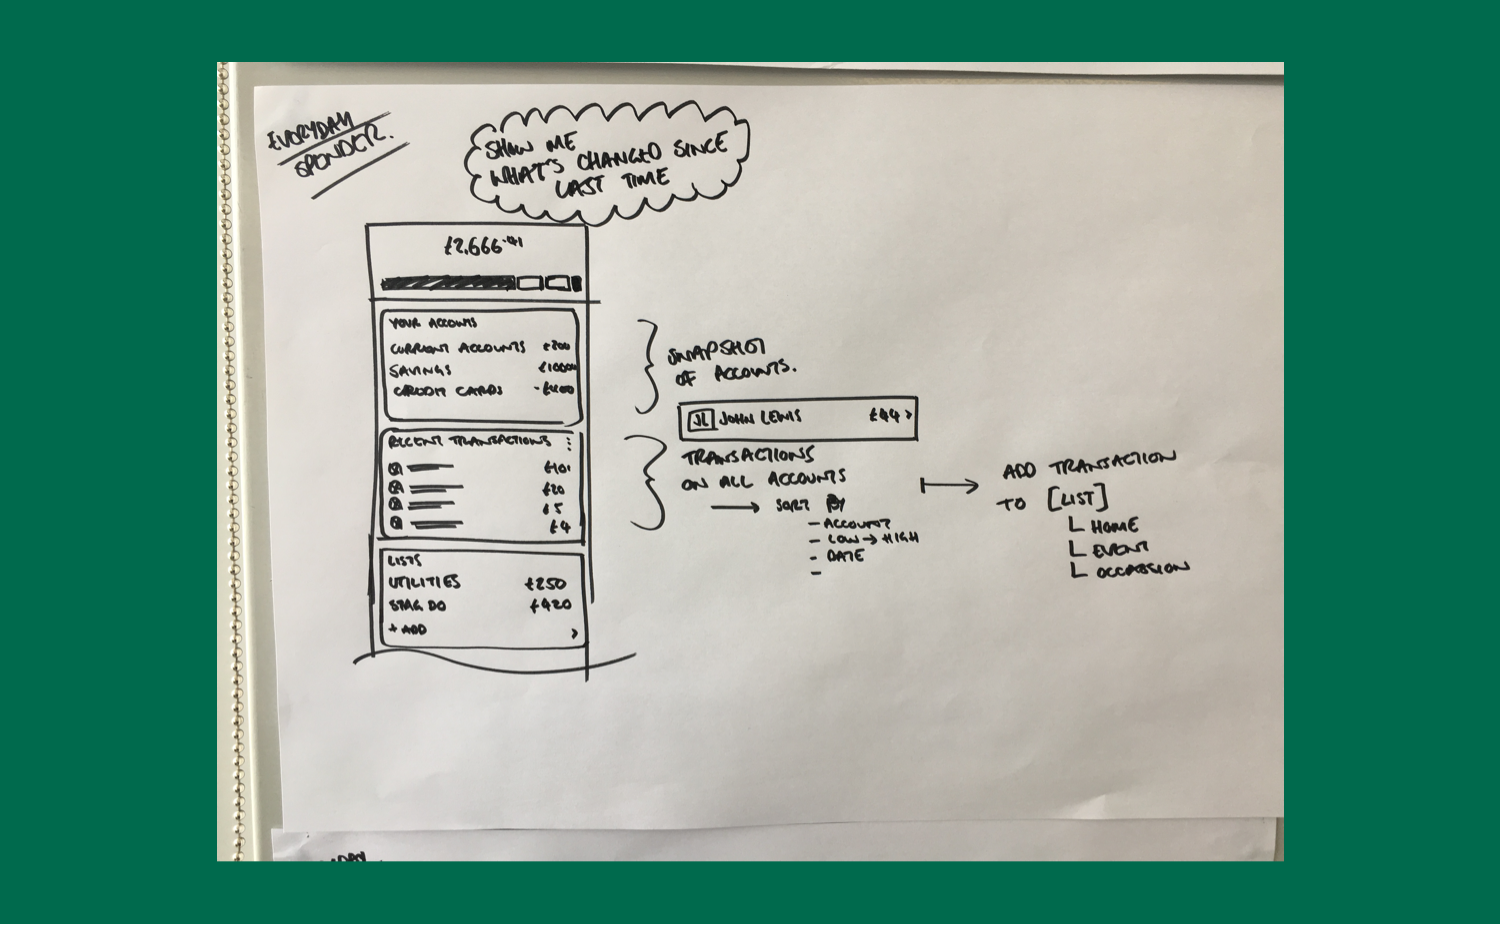 EVERYDAY
SPENDER.
SHOW ME
WHAT'S CHANGED SINCE
LAST TIME
£2,666.41
YOUR ACCOUNTS
CURRENT ACCOUNTS £200
SAVINGS £10000
CREDIT CARDS -£400
RECENT TRANSACTIONS
£101
£20
£5
£4
LISTS
UTILITIES £250
STAG DO £420
+ ADD >
SNAPSHOT
OF ACCOUNTS.
JL JOHN LEWIS £44 >
TRANSACTIONS
ON ALL ACCOUNTS
→ SORT BY
- ACCOUNT
- LOW → HIGH
- DATE
-
ADD TRANSACTION
TO [LIST]
HOME
EVENT
OCCASSION